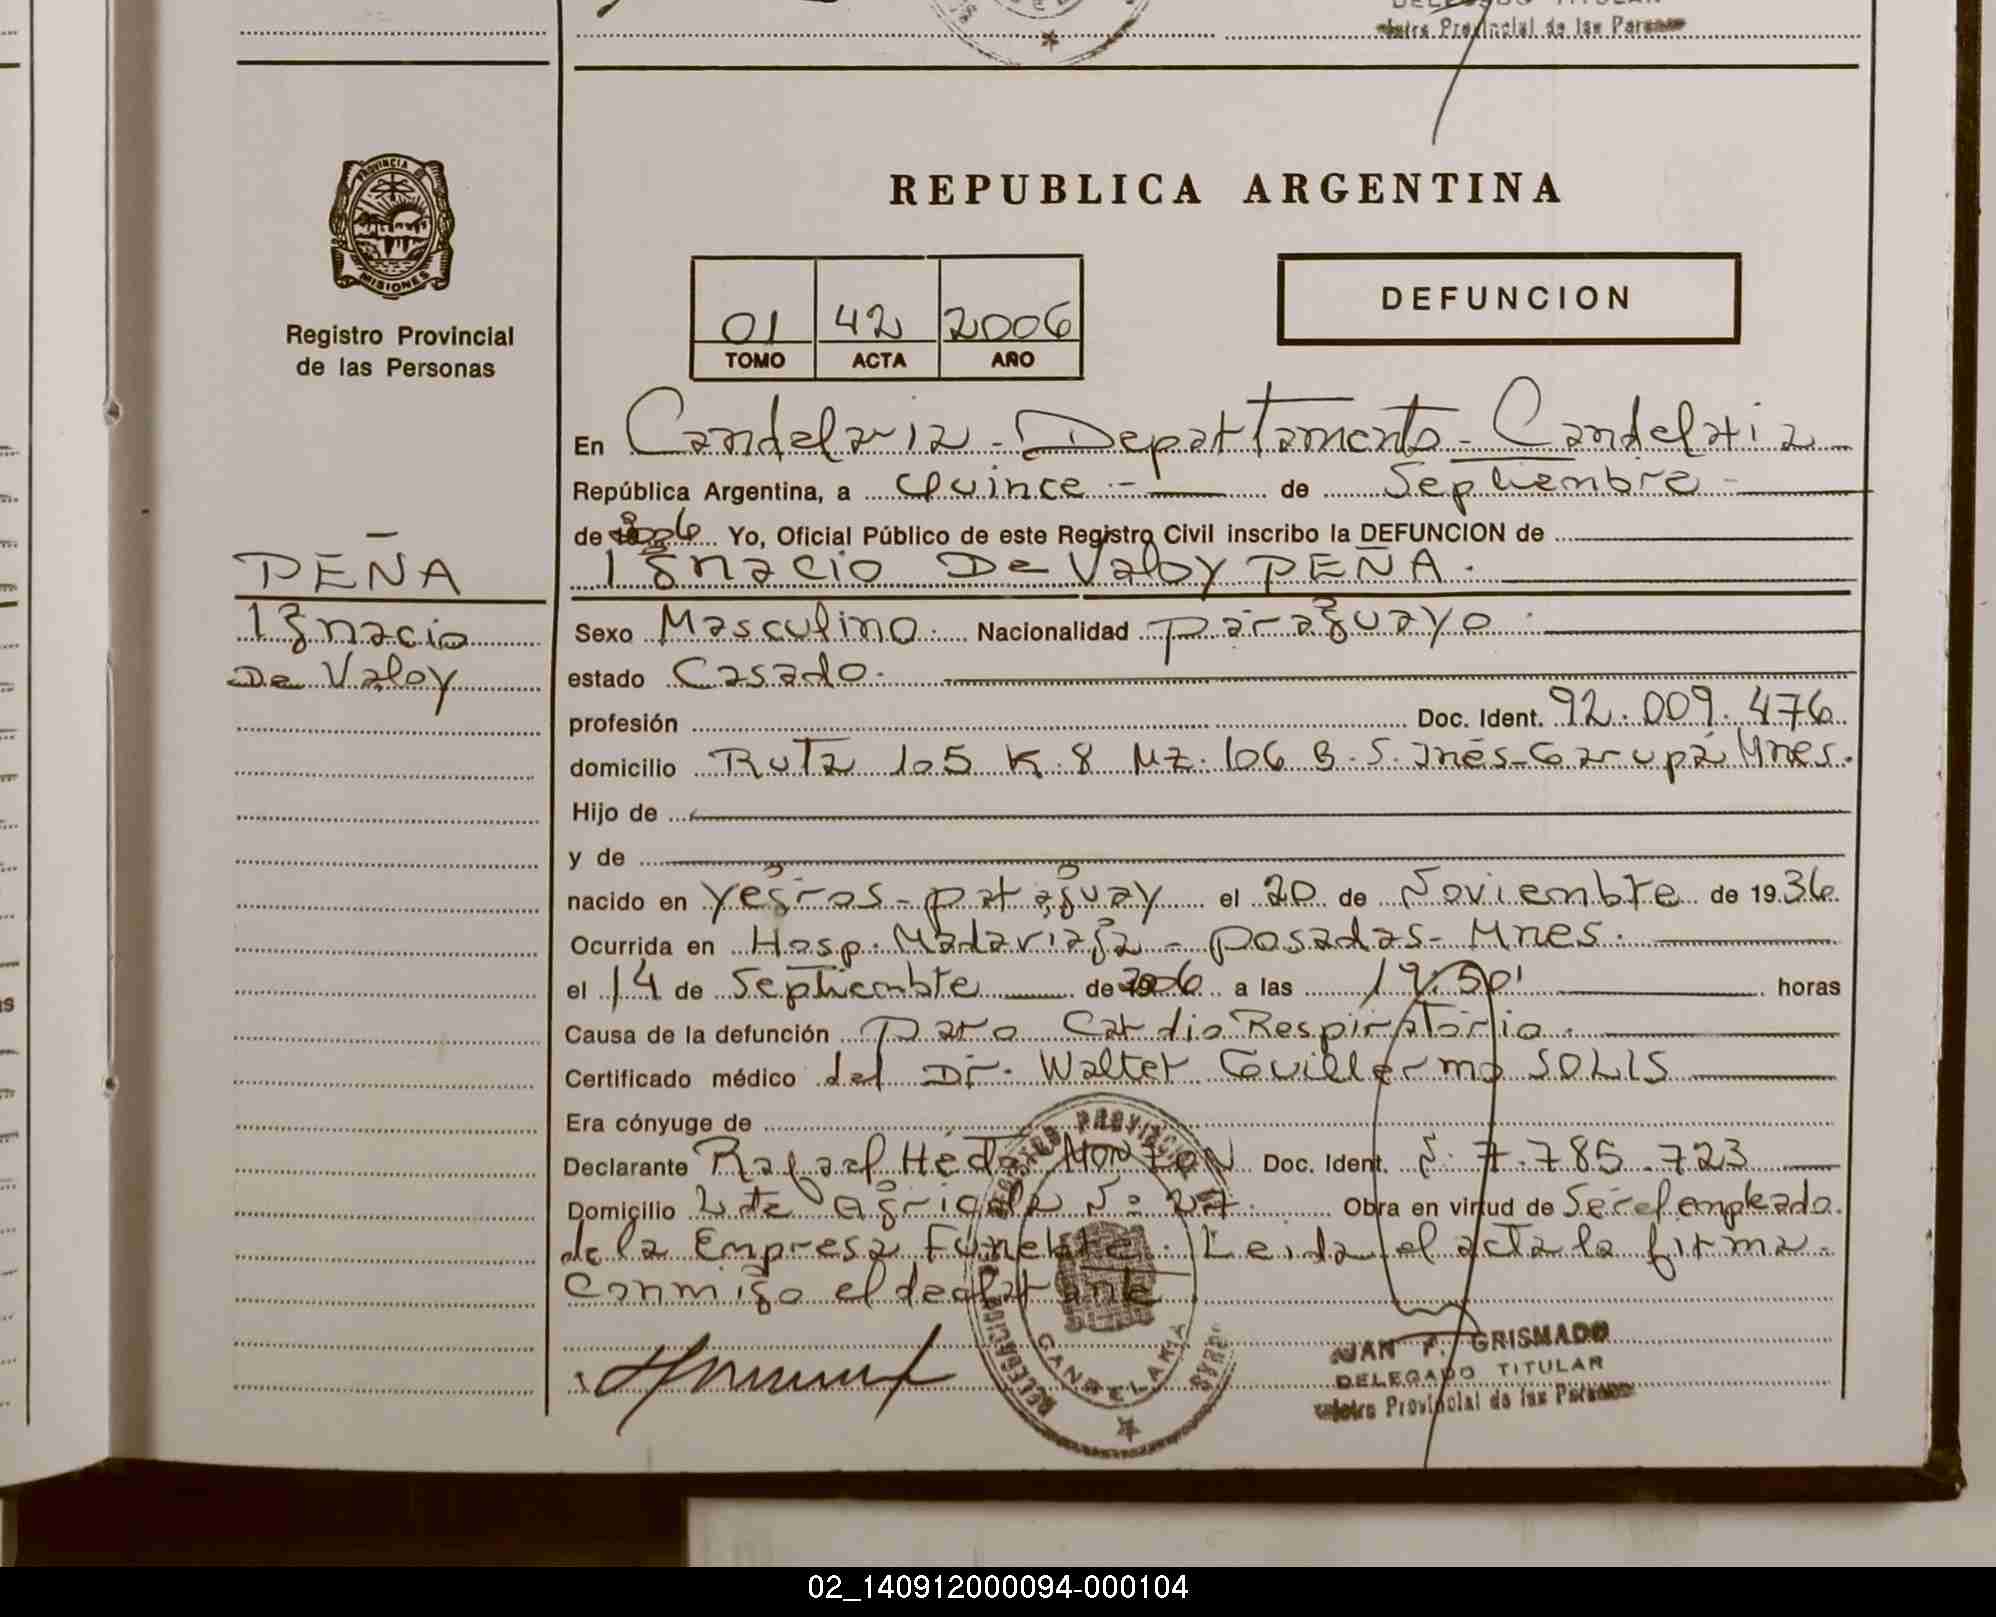 DELEGADO TITULAR
Provincial de las Personas
PROVINCIA DE
MISIONES
Registro Provincial
de las Personas
REPUBLICA ARGENTINA
01 42 2006
TOMO ACTA AÑO
DEFUNCION
En Candelaria - Departamento - Candelaria
República Argentina, a Quince de Septiembre
de 2006 Yo, Oficial Público de este Registro Civil inscribo la DEFUNCION de
Ignacio De Valoy PEÑA.
PEÑA
Ignacio
De Valoy
Sexo Masculino. Nacionalidad paraguayo.
estado Casado.
profesión Doc. Ident. 92.009.476
domicilio Ruta 105 K.8 Mz. 106 B.S. Inés - Garupá Mnes.
Hijo de
y de
nacido en yegros - paraguay el 20 de Noviembre de 1936
Ocurrida en Hosp. Madariaga - posadas - Mnes.
el 14 de Septiembre de 2006 a las horas
Causa de la defunción Paro Cardio Respiratorio.
Certificado médico del Dr. Walter Guillermo SOLIS
Era cónyuge de
Declarante Rafael Héctor MONZON Doc. Ident. N: 7.785.723
Domicilio Lote Agricola N: 27. Obra en virtud de Ser el empleado
de la Empresa Funebre. Leida el acta la firma
Conmigo el declarante
REGISTRO PROVINCIAL DE LAS
DELEGACION
CANDELARIA
JUAN F. GRISMADO
DELEGADO TITULAR
Provincial de las Personas
02_140912000094-000104